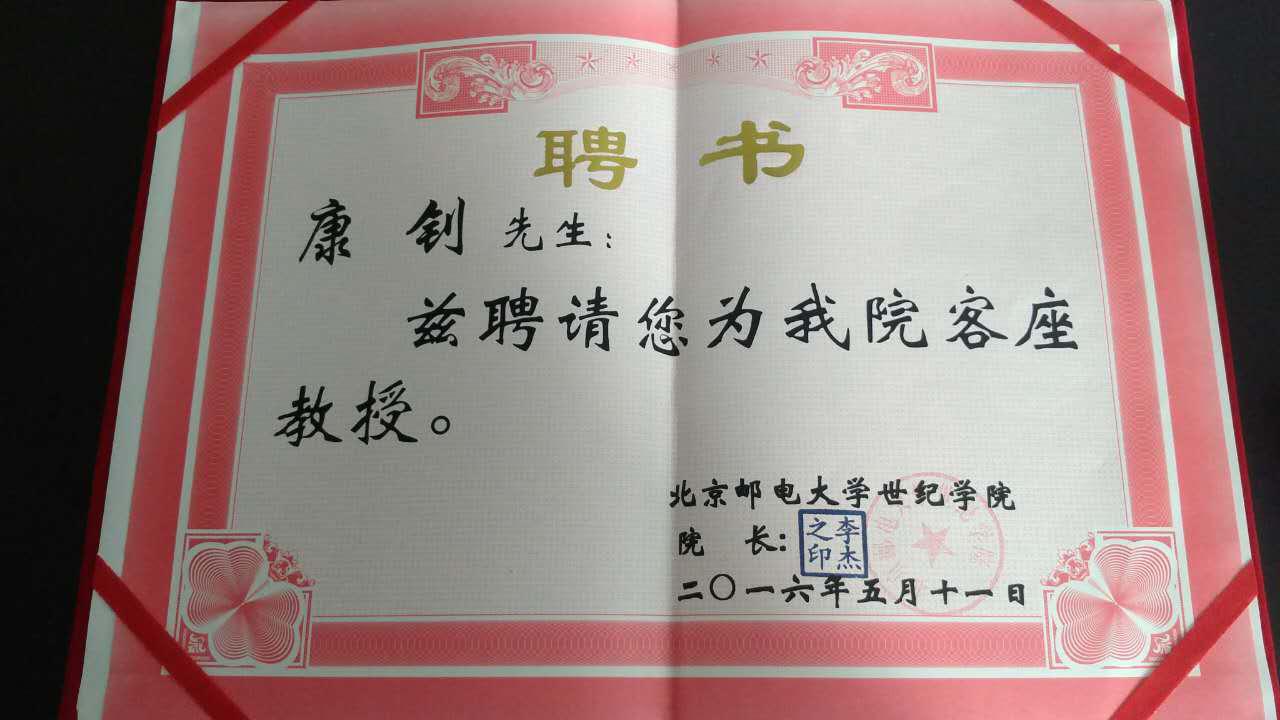 聘书
康钊先生：
兹聘请您为我院客座
教授。
北京邮电大学世纪学院
院长：李杰之印
二〇一六年五月十一日